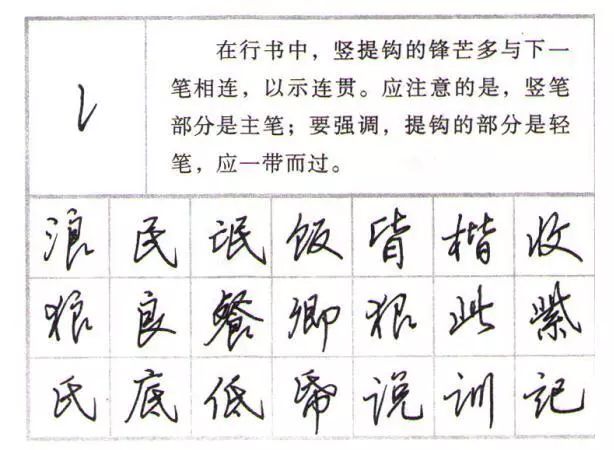 在行书中，竖提钩的锋芒多与下一
笔相连，以示连贯。应注意的是，竖笔
部分是主笔；要强调，提钩的部分是轻
笔，应一带而过。
浪 民 氓 饭 皆 楷 收
狼 良 餐 卿 狠 此 紫
氏 底 低 说 训 记